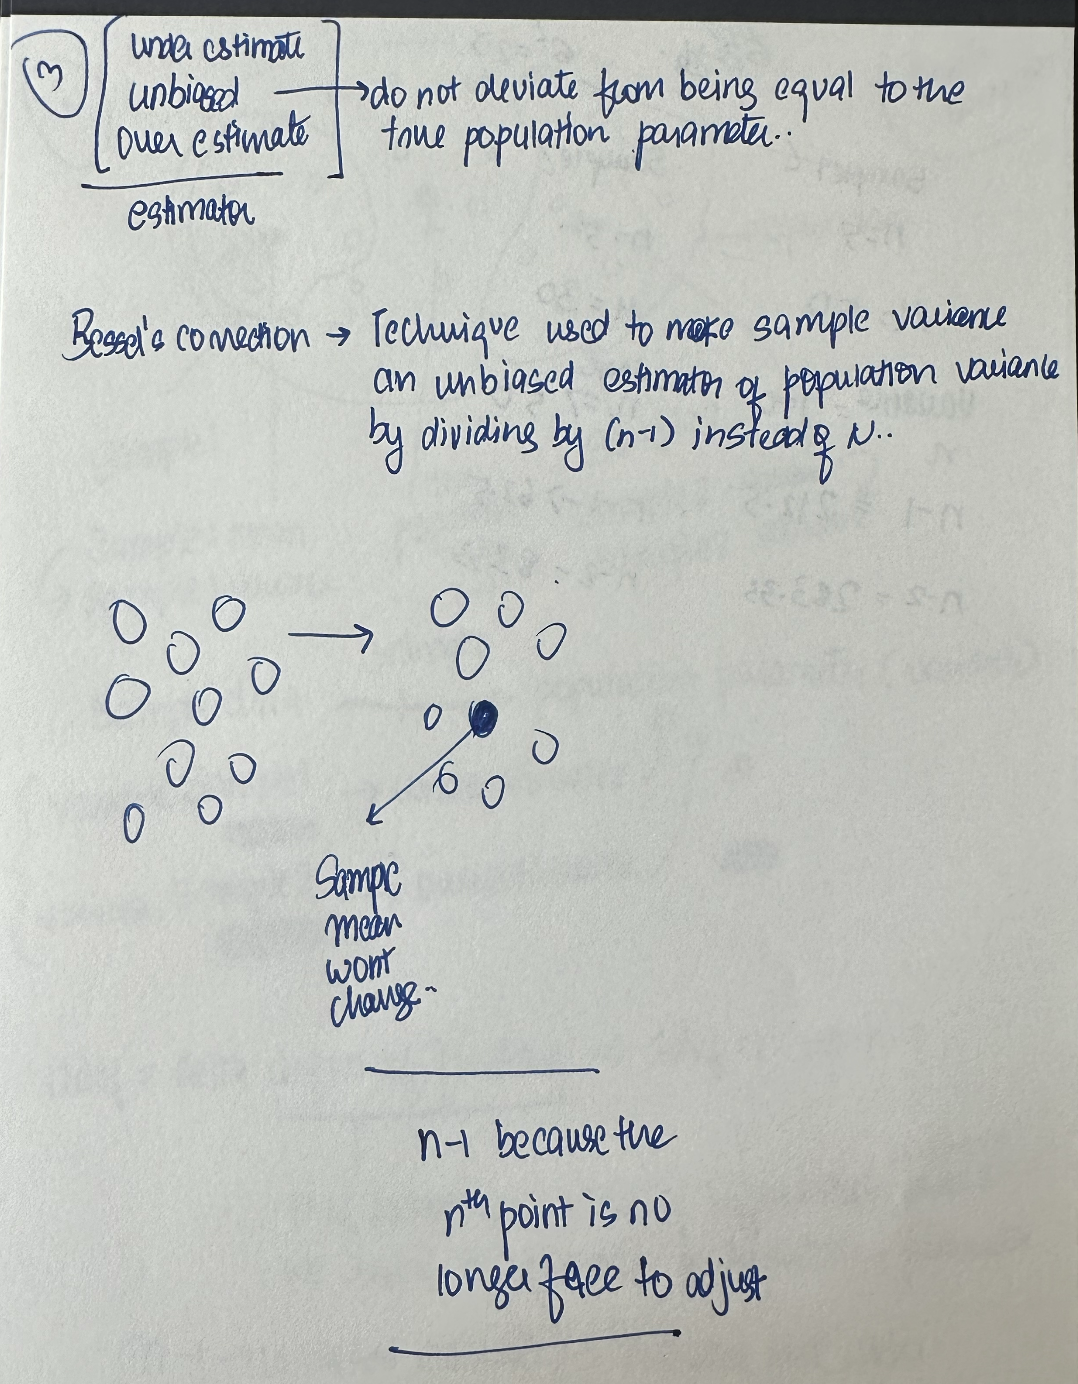 3
under estimate
unbiased → do not deviate from being equal to the
over estimate true population parameter..
estimator
Bessel's correction → Technique used to make sample variance
an unbiased estimator of population variance
by dividing by (n-1) instead of N..
Sampe
mean
wont
change..
n-1 because the
nth point is no
longer free to adjust